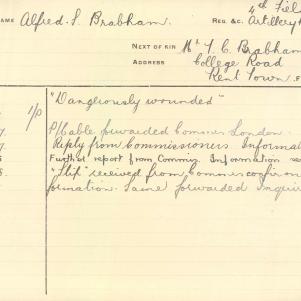 NAME Alfred. S. Brabham. REG. &C. 4th Fiel
Artillery
NEXT OF KIN Mr T. C. Brabham
ADDRESS College Road
Kent Town.
1/0 "Dangerously wounded"
P/Cable forwarded Commrs London.
Reply from Commissioners Informat
Further report from Commrs. Information
"Slip" received from Commrs confirm
formation. Same forwarded Inquir